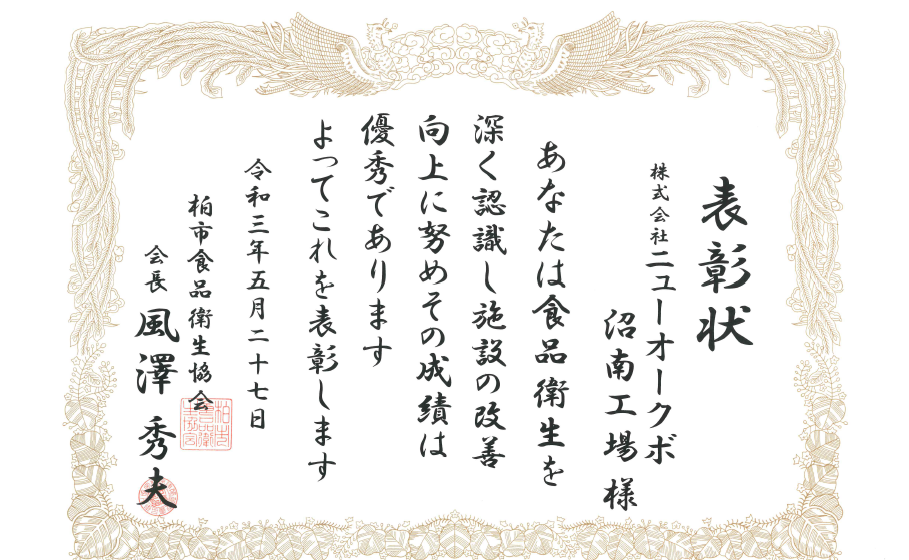 表彰状
株式会社ニューオークボ
沼南工場 様
あなたは食品衛生を
深く認識し施設の改善
向上に努めその成績は
優秀であります
よってこれを表彰します
令和三年五月二十七日
柏市食品衛生協会
会長 風澤 秀夫